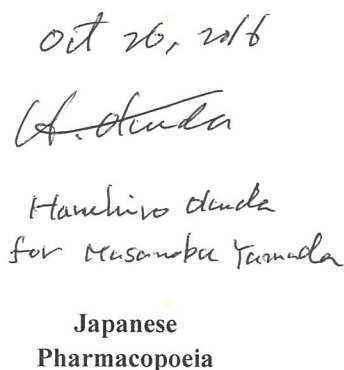 Oct 26, 2016
H. Okuda
Haruhiro Okuda
for Masanobu Yamada
Japanese
Pharmacopoeia